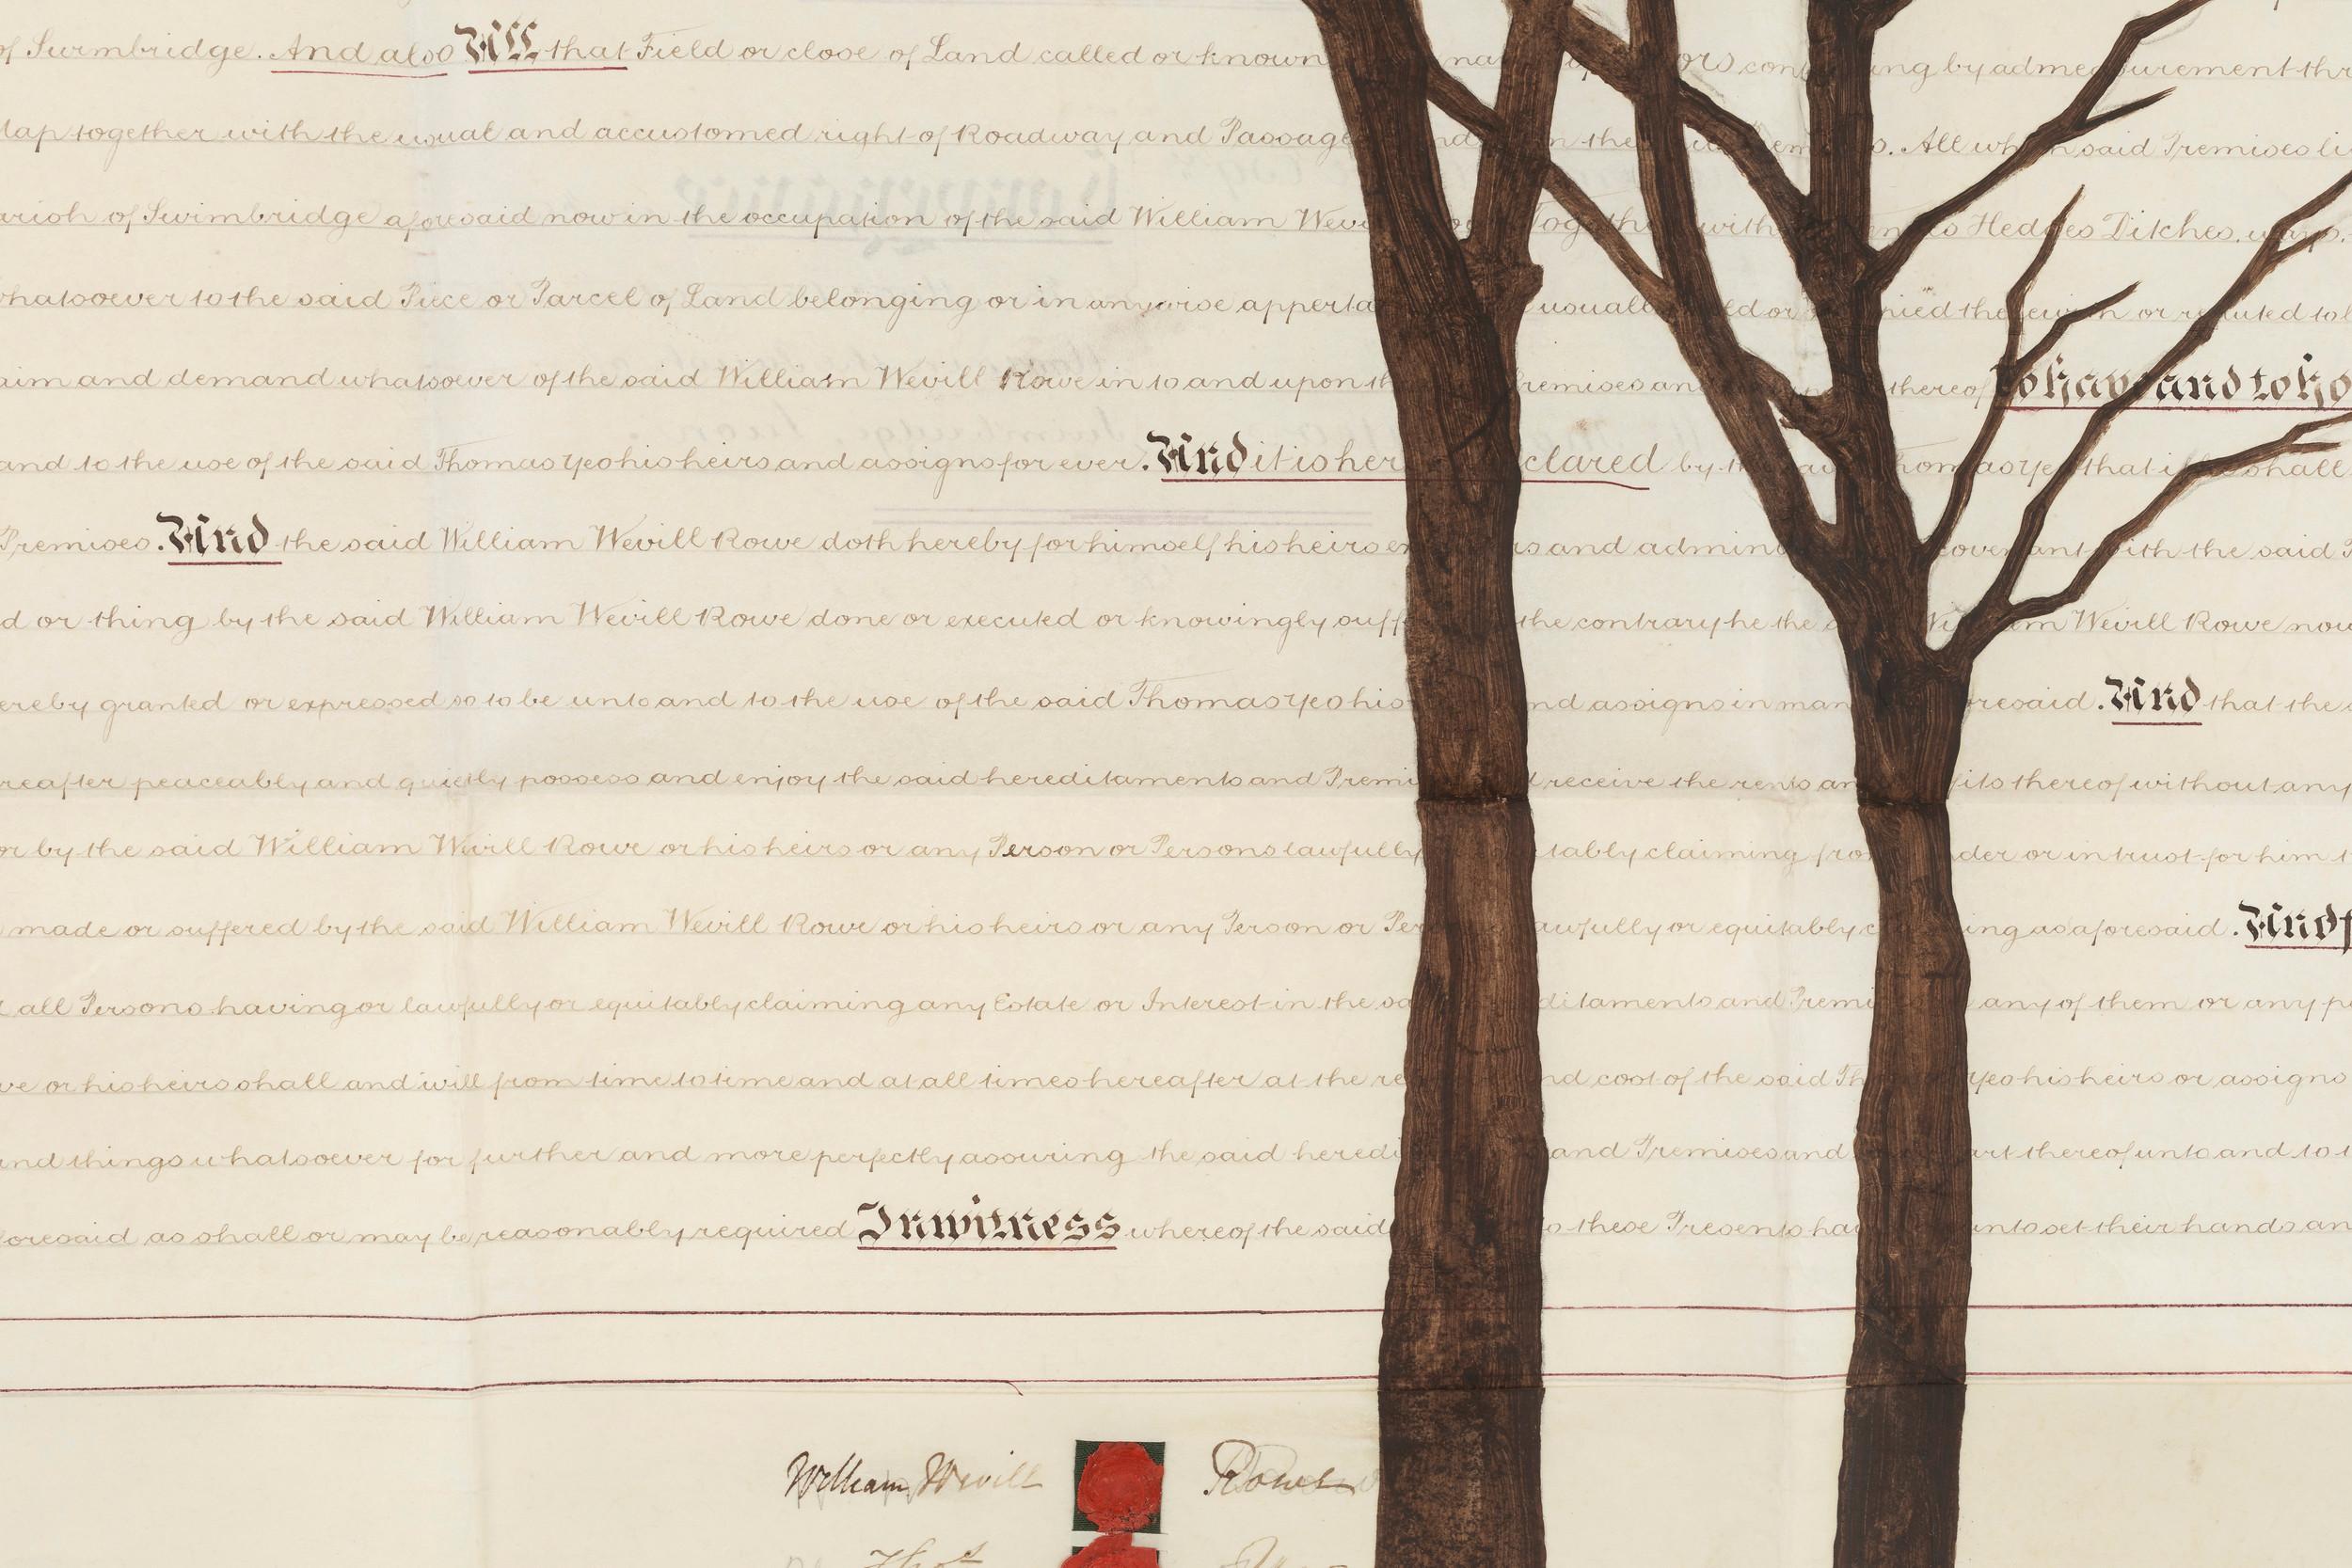 of Swimbridge. And also All that Field or close of Land called or known na ors con ing by admeasurement thr
Map together with the usual and accustomed right of Roadway and Passage in the s. All which said Premises li
arish of Swimbridge aforesaid now in the occupation of the said William Wevi Together with Hedges Ditches, ways,
whatsoever to the said Piece or Parcel of Land belonging or in anywise apperta usually ed or pied therewith or reputed to b
aim and demand whatsoever of the said William Wevill Rowe in to and upon th remises an thereof To have and to ho
and to the use of the said Thomas Yeo his heirs and assigns for ever. And it is her clared by the said Thomas Yeo that if shall
Premises. And the said William Wevill Rowe doth hereby for himself his heirs ex rs and admin covenant with the said T
d or thing by the said William Wevill Rowe done or executed or knowingly suff the contrary he the s William Wevill Rowe now
ereby granted or expressed so to be unto and to the use of the said Thomas Yeo his nd assigns in man resaid. And that the s
reafter peaceably and quietly possess and enjoy the said hereditaments and Premi receive the rents an fits thereof without any
or by the said William Wevill Rowe or his heirs or any Person or Persons lawfully itably claiming fro der or in trust for him
made or suffered by the said William Wevill Rowe or his heirs or any Person or Per awfully or equitably c ing as aforesaid. And f
all Persons having or lawfully or equitably claiming any Estate or Interest in the sa ditaments and Premi any of them or any p
we or his heirs shall and will from time to time and at all times hereafter at the re nd cost of the said Th Yeo his heirs or assigns
and things whatsoever for further and more perfectly assuring the said heredi and Premises and art thereof unto and to t
foresaid as shall or may be reasonably required In witness whereof the said o these Presents ha unto set their hands an
William Wevill Rowe
Thos